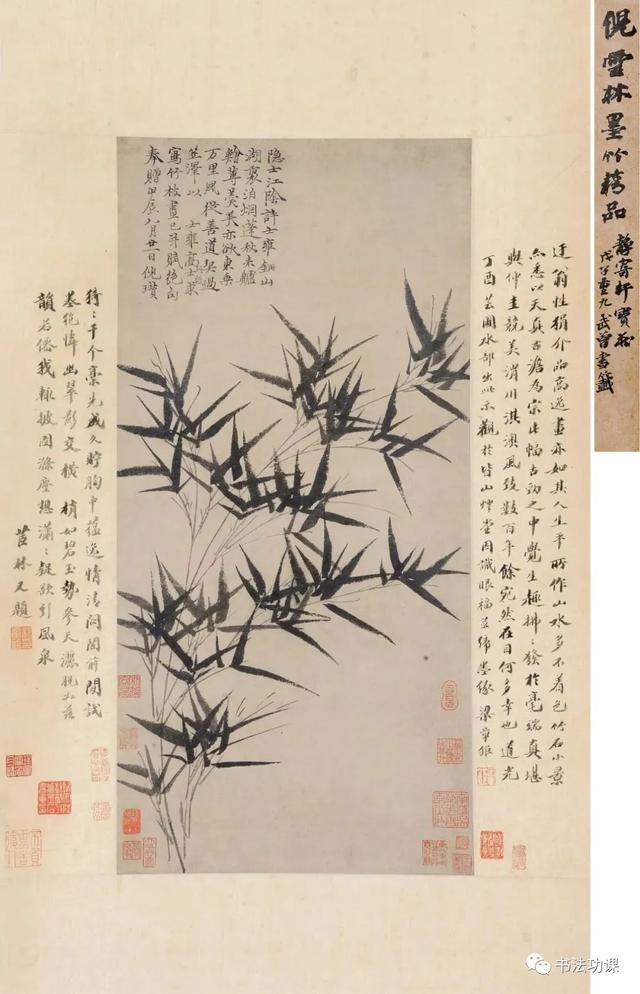 倪雲林墨竹品
靜寄軒寶藏
戊子重九武曾書籤
迂翁性狷介品高逸畫亦如其人生平所作山水多不着色竹石小景
亦悉以天真古澹為宗此幅古勁之中覺生趣拂〻發於毫端真堪
與仲圭競美渭川淇澳風致數百年餘宛然在目何多幸也道光
丁酉芸圃水部出此示觀於皆山艸堂因識眼福並締墨緣 梁章鉅
隐士江陰許士雍
湖裏泊烟蓬秋來鱸
鱠蓴羹美亦欲東乘
万里風從善道契過
笠澤以 士雍高士求
寫竹枝畫已并賦絶句
奉贈甲辰八月廿一日倪瓚
猗〻千个稾先成久貯胸中蘊逸情清閟閣前閒試
墨絶憐幽翠影交橫 梢如碧玉勢參天灑脫如茲
韻若僊我輒披圖滌塵想瀟〻疑欲引風泉
茝林又題
书法功课